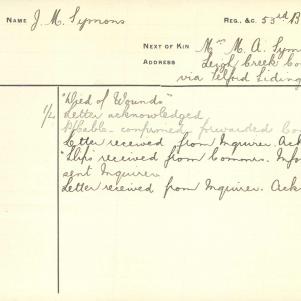 NAME J. M. Symons REG. &C. 53rd B
NEXT OF KIN Mrs M. A. Sym
ADDRESS Leigh Creek Co
via Telford Siding
"Died of Wounds"
1/2 Letter acknowledged
Cable confirmed forwarded Co
Letter received from Inquirer. Ack
Slips received from Commrs. Info
sent Inquirer
Letter received from Inquirer. Ack